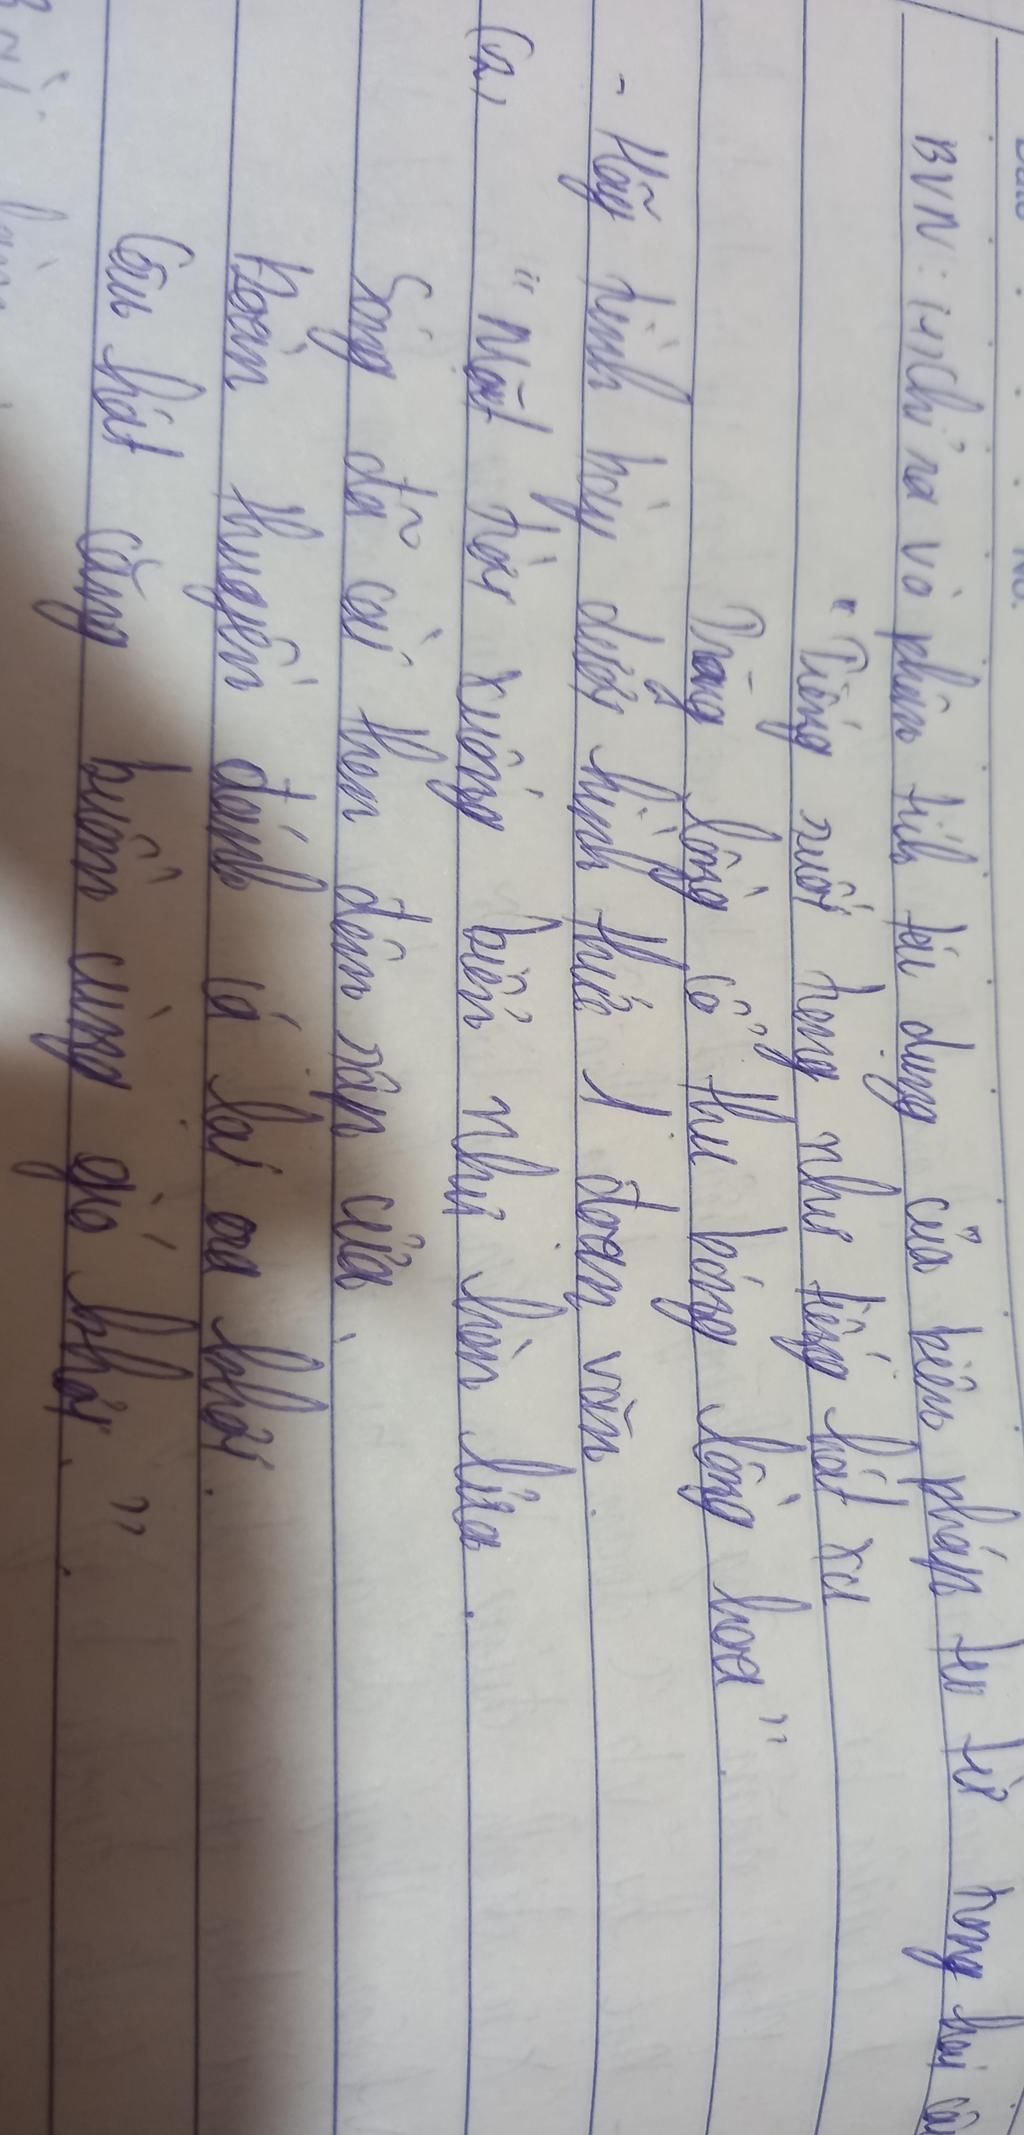 BVN: 1, Chỉ ra và phân tích tác dụng của biện pháp tu từ trong hai câu
" Tiếng suối trong như tiếng hát xa
Trăng lồng cổ thụ bóng lồng hoa "
- Hãy trình bày dưới hình thức 1 đoạn văn.
(2,) " Mặt trời xuống biển như hòn lửa
Sóng đã cài then đêm sập cửa
Đoàn thuyền đánh cá lại ra khơi.
Câu hát căng buồm cùng gió khơi. "